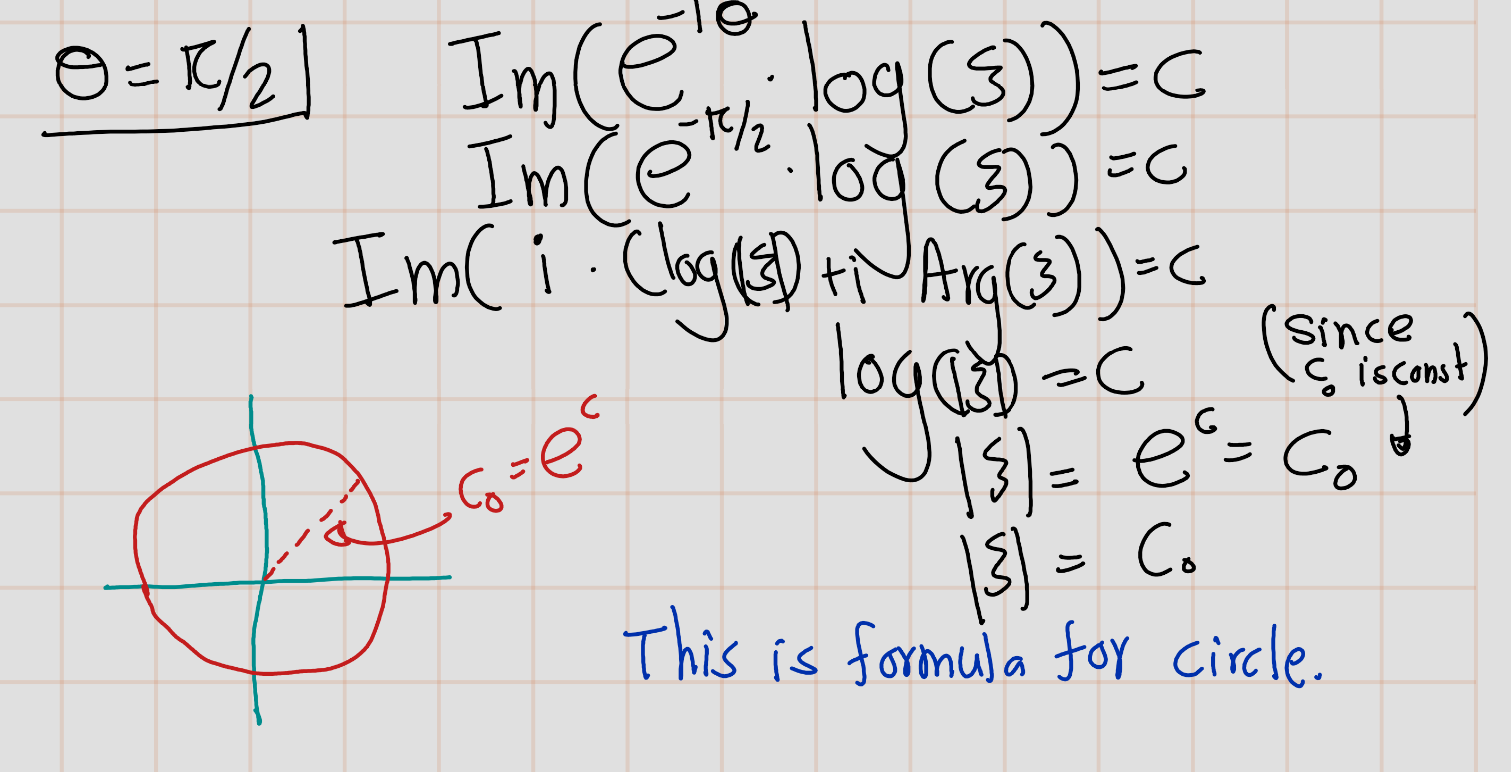 θ = π/2
Im(e^{-iθ} · log(ξ)) = C
Im(e^{-π/2} · log(ξ)) = C
Im( i · (log(|ξ|) + i Arg(ξ)) ) = C
log(|ξ|) = C
(since C₀ is const)
|ξ| = e^c = C₀
C₀ = e^c
|ξ| = C₀
This is formula for circle.